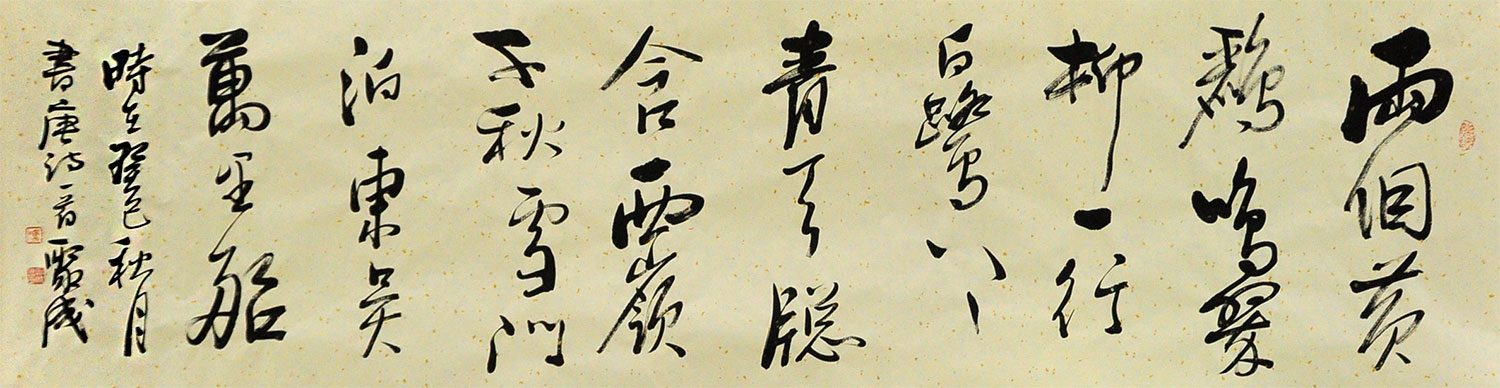 兩個黃
鸝鳴翠
柳一行
白鷺上
青天牕
含西嶺
千秋雪門
泊東吳
萬里船
時在癸巳秋月
書唐詩一首聚成